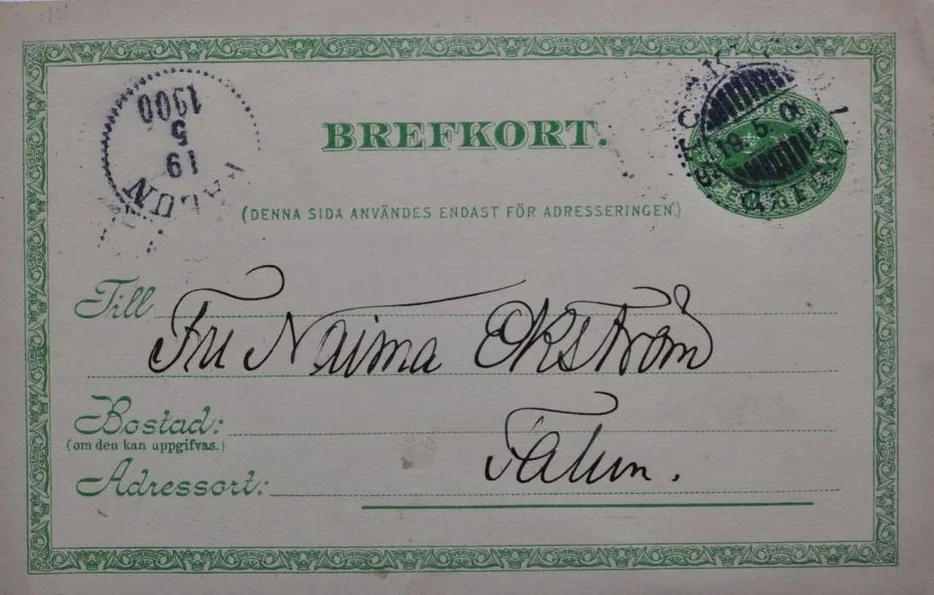 BREFKORT.
(DENNA SIDA ANVÄNDES ENDAST FÖR ADRESSERINGEN.)
1900
5
19
FALUN
19.5.0
Till
Fru Naima Ekström
Bostad:
(om den kan uppgifvas.)
Falun.
Adressort: